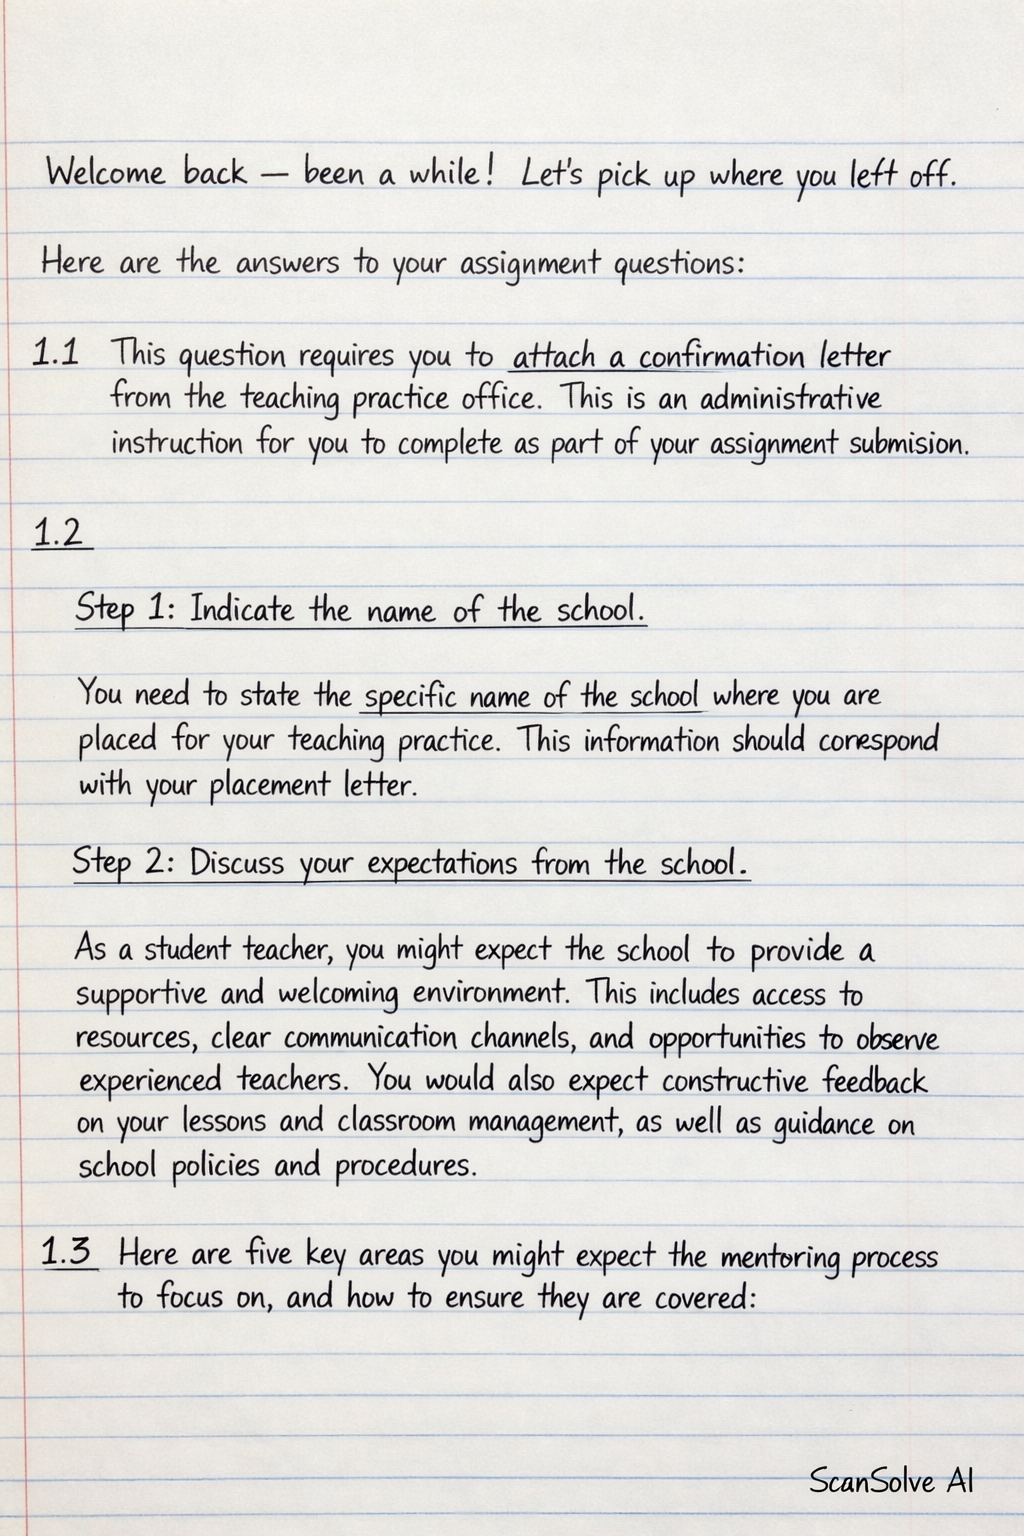 Welcome back — been a while! Let's pick up where you left off.
Here are the answers to your assignment questions:
1.1 This question requires you to attach a confirmation letter
from the teaching practice office. This is an administrative
instruction for you to complete as part of your assignment submision.
1.2
Step 1: Indicate the name of the school.
You need to state the specific name of the school where you are
placed for your teaching practice. This information should correspond
with your placement letter.
Step 2: Discuss your expectations from the school.
As a student teacher, you might expect the school to provide a
supportive and welcoming environment. This includes access to
resources, clear communication channels, and opportunities to observe
experienced teachers. You would also expect constructive feedback
on your lessons and classroom management, as well as guidance on
school policies and procedures.
1.3 Here are five key areas you might expect the mentoring process
to focus on, and how to ensure they are covered:
ScanSolve AI